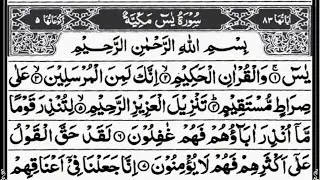 اٰیَاتُهَا ٨٣ سُوْرَةُ یٰسٓ مَكِّیَّةٌ رُكُوْعَاتُهَا ٥
بِسْمِ اللهِ الرَّحْمٰنِ الرَّحِیْمِ
یٰسٓ ۝١ وَالْقُرْاٰنِ الْحَكِیْمِ ۝٢ اِنَّكَ لَمِنَ الْمُرْسَلِیْنَ ۝٣ عَلٰی
صِرَاطٍ مُّسْتَقِیْمٍ ۝٤ تَنْزِیْلَ الْعَزِیْزِ الرَّحِیْمِ ۝٥ لِتُنْذِرَ قَوْمًا
مَّاۤ اُنْذِرَ اٰبَآؤُهُمْ فَهُمْ غٰفِلُوْنَ ۝٦ لَقَدْ حَقَّ الْقَوْلُ
عَلٰۤی اَكْثَرِهِمْ فَهُمْ لَا یُؤْمِنُوْنَ ۝٧ اِنَّا جَعَلْنَا فِیْۤ اَعْنَاقِهِمْ